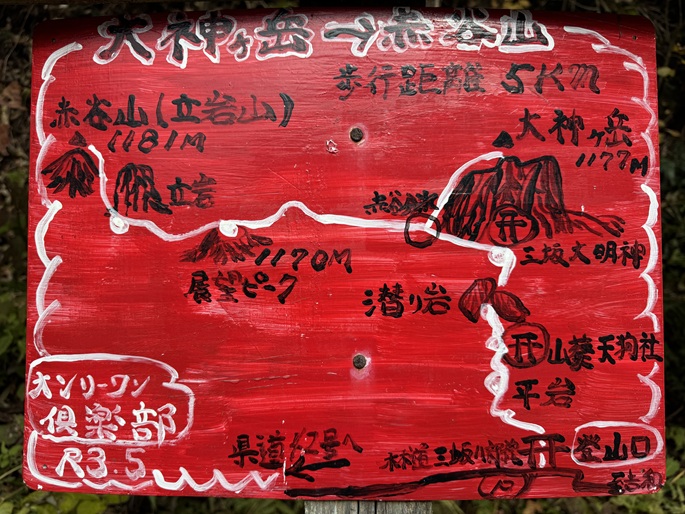 大神ヶ岳〜赤谷山
歩行距離 5Km
赤谷山(立岩山)
1181M
大神ヶ岳
1177M
立岩
三坂大明神
1170M
展望ピーク
潜り岩
山葵天狗社
平岩
オンリーワン
倶楽部
R3.5
県道 紅葉へ
三坂八郎
登山口